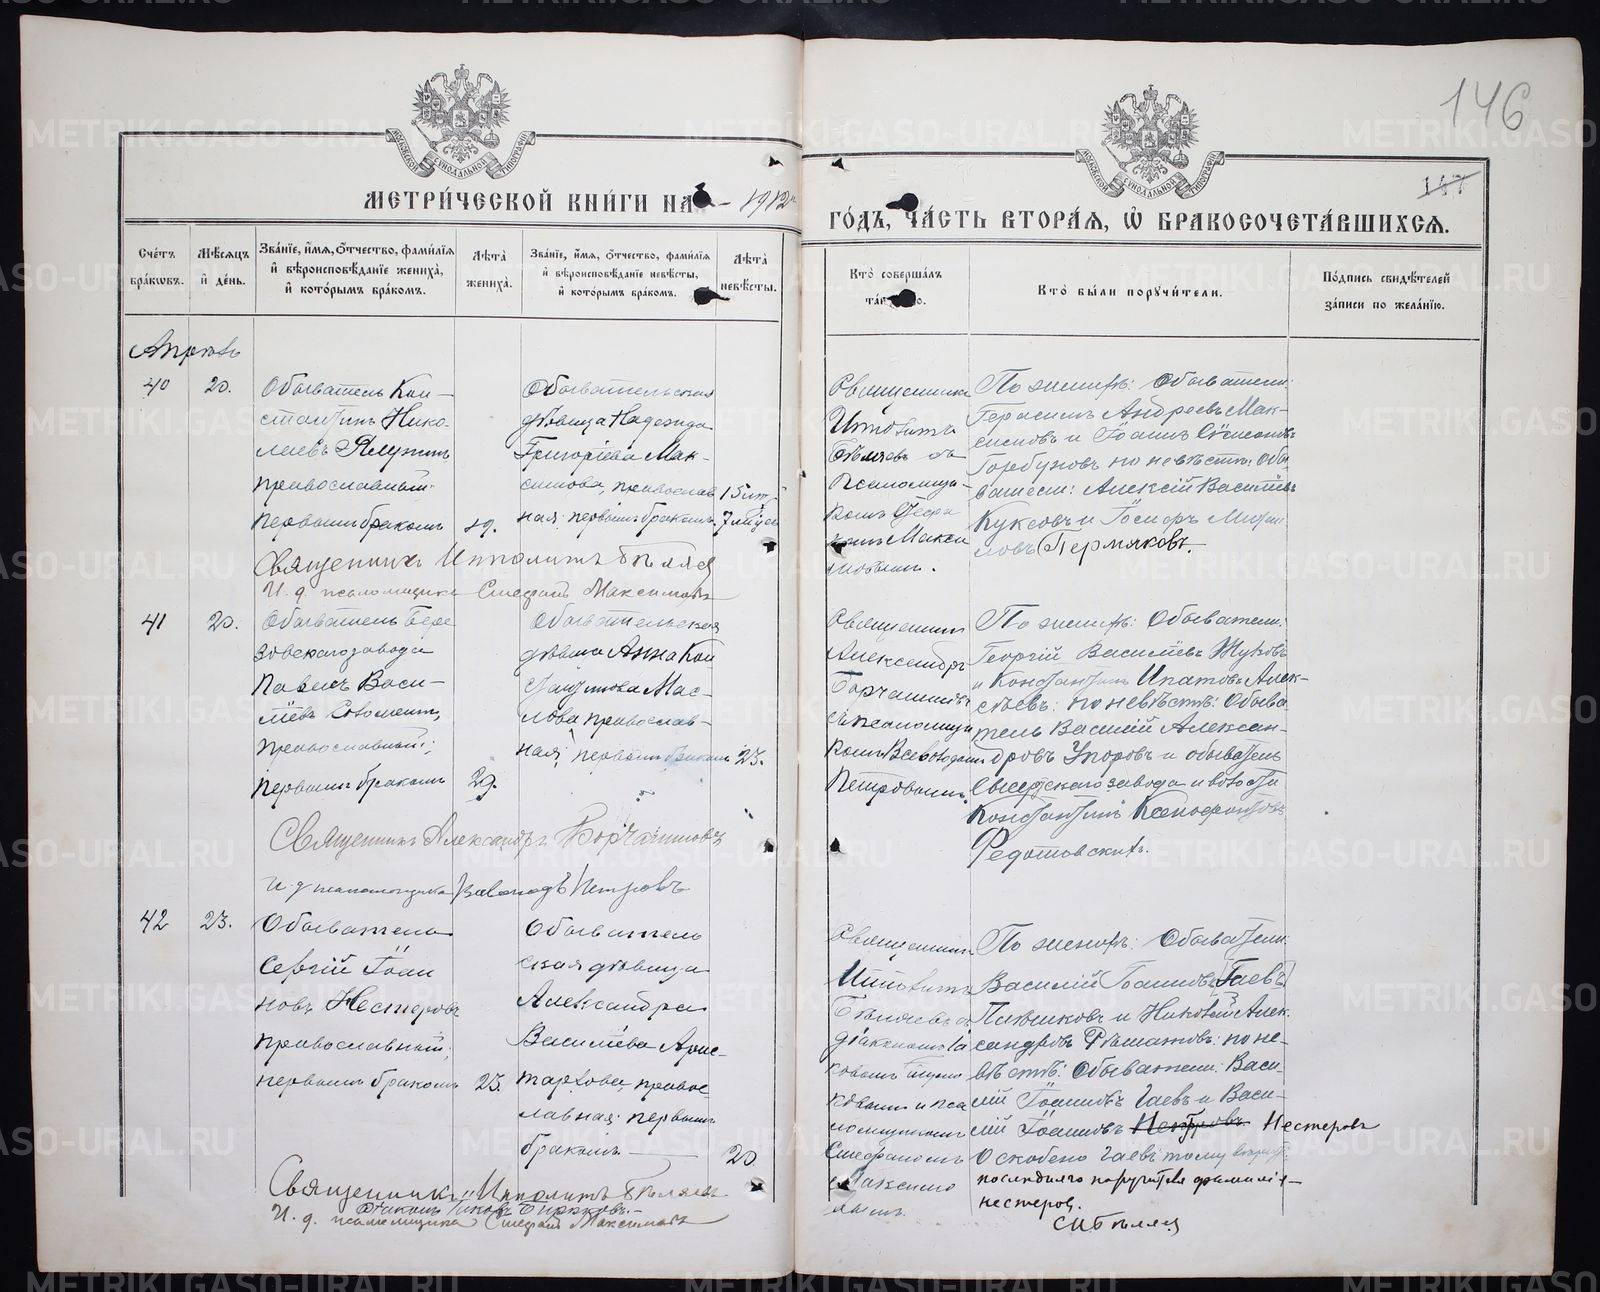 146
147
МОСКОВСКОЙ СѴНОДАЛЬНОЙ ТИПОГРАФІИ
МОСКОВСКОЙ СѴНОДАЛЬНОЙ ТИПОГРАФІИ
МЕТРИ́ЧЕСКОЙ КНИ́ГИ НА 1912
ГО́ДЪ, ЧА́СТЬ ВТОРА́Я, Ѽ БРАКОСОЧЕТА́ВШИХСЯ.
Сче́тъ бра́кѡвъ.
Мѣ́сяцъ и҆ де́нь.
Зва́нїе, и҆́мя, ѻ҆́тчество, фами́лїя и҆ вѣроисповѣ́данїе жениха̀, и҆ кото́рымъ бра́комъ.
Лѣта̀ жениха̀.
Зва́нїе, и҆́мя, ѻ҆́тчество, фами́лїя и҆ вѣроисповѣ́данїе невѣ́сты, и҆ кото́рымъ бра́комъ.
Лѣта̀ невѣ́сты.
Кто̀ соверша́лъ
Кто̀ бы́ли порꙋчи́тели.
По́дпись свидѣ́телей за́писи по жела́нїю.
Апрѣль
40
20.
Обыватель Кон-
стантинъ Нико-
лаевъ Ялунин
православный:
первымъ бракомъ
19.
Обывательская
дѣвица Надежда
Григоріева Мак-
симова, православ
ная: первымъ бракомъ.
15 лѣт
Священника
Ипполитъ
Бѣляевъ съ
Псаломщи-
комъ Стефа
номъ Макси
мовымъ.
По женихѣ: Обыватели:
Герасимъ Андреевъ Мак-
симовъ и Іоаннъ Сѵмеоновъ
Горбуновъ по невѣстѣ: Обы-
ватели: Алексій Василіевъ
Куксовъ и
ловъ (Пермяковъ.
Священникъ Ипполитъ Бѣляев
И. д. псаломщика Стефанъ Максимовъ
41
20.
Обыватель Бере
зовскаго завода
Павелъ Васи-
ліевъ
православный;
первымъ бракомъ
29.
Обывательская
дѣвица Анна Кон
стантинова Мас-
лова православ-
ная; первымъ бракомъ
23.
Священникъ
Александръ
Борчаниновъ
съ псаломщи
комъ Всеволодомъ
Петровымъ.
По женихѣ: Обыватели:
Георгій Василіевъ Жуковъ
и Константинъ Ипатовъ Алек-
сѣевъ: по невѣстѣ: Обыва
тель Василій Алексан-
дровъ Упоровъ и обыватель
Сысертскаго завода и волости
Константинъ Ксенофонтовъ
Федотовскихъ.
Священникъ Александръ Борчаниновъ
И. д. псаломщика Всеволодъ Петровъ
42
23.
Обыватель
Сергій Іоан
новъ Нестеровъ
православный;
первымъ бракомъ
23.
Обыватель
ская дѣвица
Александра
Василіева Арис-
тархова, правос
лавная: первымъ
бракомъ
20
Священник
Ипполитъ
Бѣляевъ съ
діакономъ Іа
ковомъ
ковымъ и пса
ломщикомъ
Стефаномъ
Максимо
вымъ.
По женихѣ: Обыватели:
Василій Іоанновъ [Гаевъ]
и Николай Алек-
сандровъ по не-
вѣстѣ: Обыватели: Васи-
лій Іоанновъ Гаевъ и Васи-
лій Іоанновъ Петровъ Нестеровъ
О скобено Гаевъ тому
последняго поручителя фамилія-
нестеров.
С И Бѣляев
Священникъ Ипполитъ Бѣляевъ
Діаконъ Іаковъ Бирюковъ.
И. д. псаломщика Стефанъ Максимовъ
METRIKI.GASO-URAL.RU